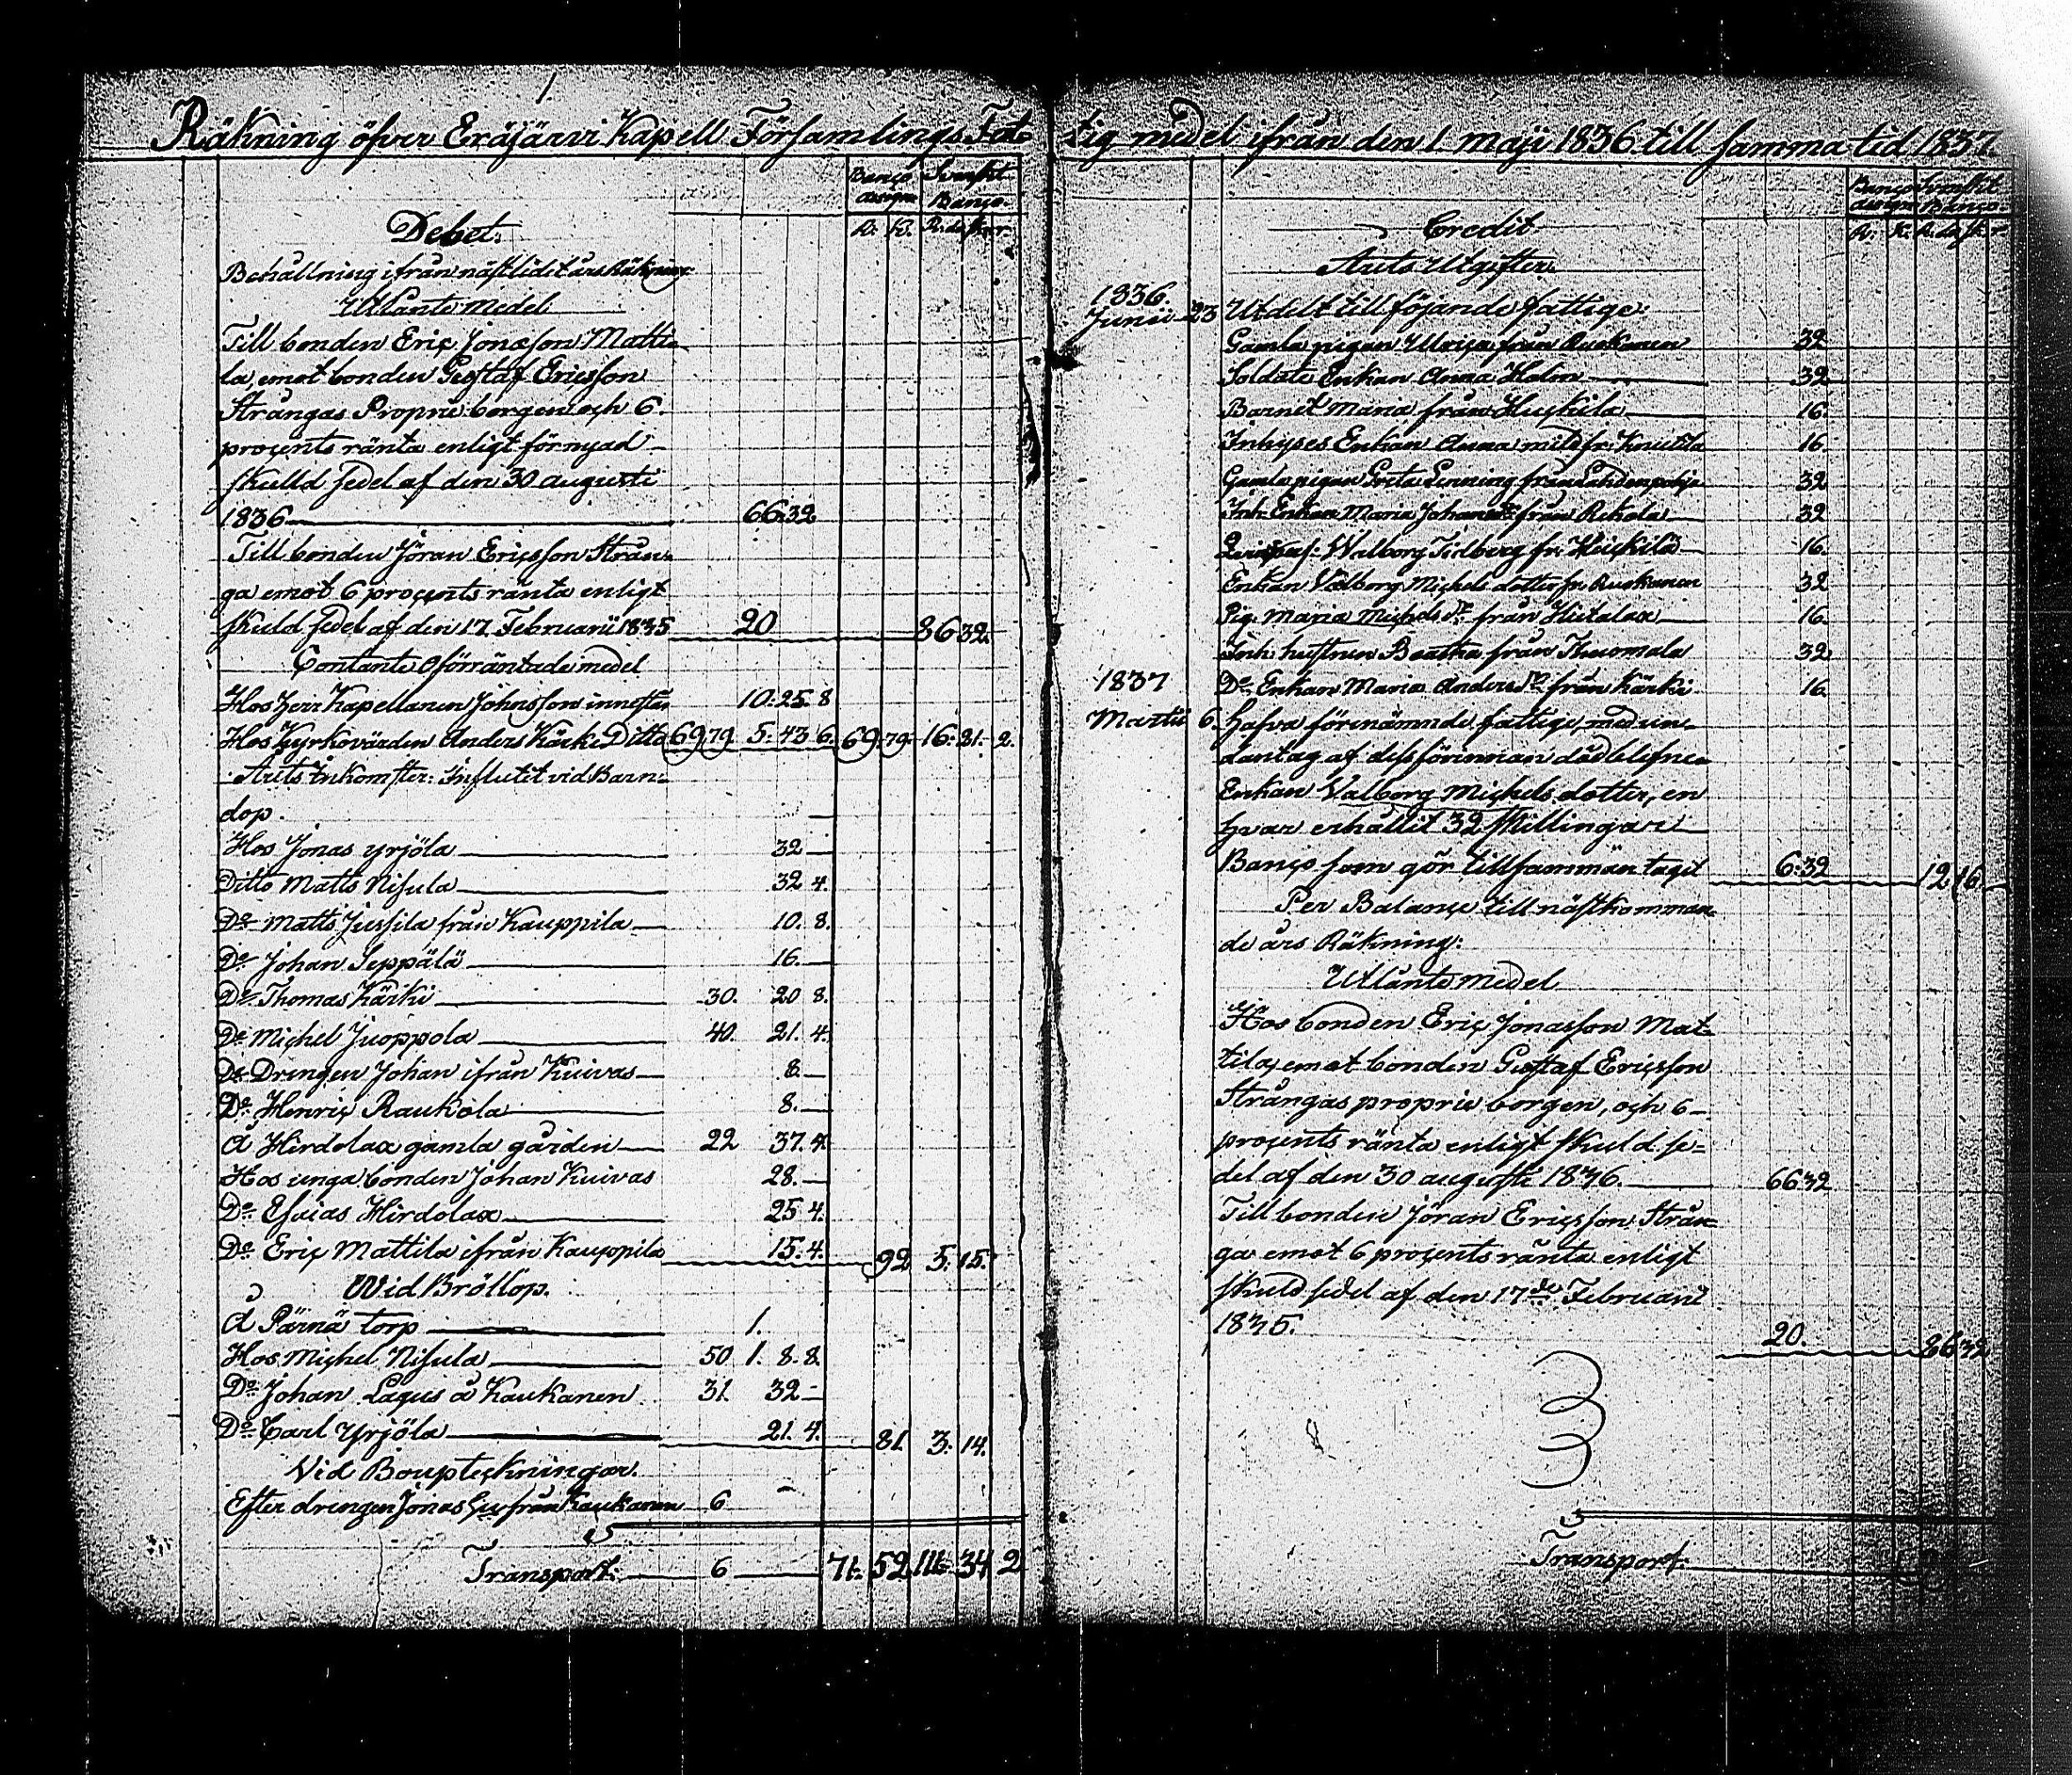 1.
Räkning öfver Eräjärvi Kapell Församlings Fat-
Banco assign Svenskt Banco.
Debet.
R: K. R.der sk. r
Behållning ifrån nästlidit års Räkning
Utlånte medel
Till bonden Eric Jonasson Matti-
la, emot bonden Gustaf Ericsson
Strångas Proprie borgen och 6.
procents ränta enligt förnyad
skulld sedel af den 30 augusti
1836 66:32
Till bonden Jöran Ericsson Strån-
ga emot 6 procents ränta enligt
skuld sedel af den 17 Februarii 1835 20 86 32.
Contante oförräntade medel
Hos Herr Kapellanen Johnsson innestår 10:25. 8
Hos Kyrkovärden Anders Kärki Ditto 69 79 5: 43 6. 69. 79. 16: 21. 2.
Årets Inkomster: Influtit vid Barn-
dop.
Hos Jonas Yrjölä 32
Ditto Matts Nisula 32 4.
Do Matts Jussila från Kauppila 10. 8.
Do Johan Seppälä 16.
Do Thomas Kärki 30. 20 8.
Do Michel Juoppola 40. 21. 4.
Do Drengen Johan ifrån Kuivas 8.
Do Henric Raukola 8.
å Hirdolax gamla gården 22 37. 4.
Hos unga bonden Johan Kuivas 28.
Do Esaias Hirdolax 25 4.
Do Eric Mattila ifrån Kauppila 15. 4. 92 5: 15.
Wid Bröllop.
å Pärnä torp 1.
Hos Michel Nisula 50 1. 8. 8.
Do Johan Lagus å Kaukanen 31. 32
Do Carl Yrjölä 21. 4. 81. 3: 14.
Vid Boupteckningar.
Efter drengen Jonas från Kaukanen 6
Transport: 6 71. 52 111. 34 2
tig medel ifrån den 1. maji 1836 till samma tid 1837
Banco assign Svenskt Banco.
Credit
R: K. R.der sk. r
Årets Utgifter
1836.
Junii 23 Utdelt till föjande fattige:
Gamla pigan Ulrica från Ruokanen 32
Soldats Enkan Anna Holm 32
Barnet Maria från Huikila 16.
Inhyses Enkan Anna Matsdr Knutila 16.
Gamla pigan Greta Lenning från Lahdenpohja 32
Inh: Enkan Maria Johansdr från Rekola 32
Walborg Tidberg fr. Heickilä 16.
Enkan Valborg Michels dotter fr. Ruokanen 32
Pig. Maria Michels Dr från Hietalax 16.
Inh. hustrun Beatha från Thuomala 32
1837 Do Enkan Maria Anders Dr från Kärki 16.
Martii 6. Hafva förenämnde fattige, med un-
dantag af dessförinnan dödblefne
Enkan Valborg Michels dotter, en
hvar erhållit 32 skillingar
Banco som gör tillsamman tagit 6:32 12 16
Per Balance till nästkomman-
de års Räkning:
Utlånte medel
Hos bonden Eric Jonasson Mat-
tila, emot bonden Gustaf Ericsson
Strångas proprie borgen, och 6
procents ränta enligt skuld se-
del af den 30 augusti 1836. 66 32
Till bonden Jöran Ericsson Strån-
ga emot 6 procents ränta enligt
skuld sedel af den 17de Februarii
1835. 20. 86 32
Transport: